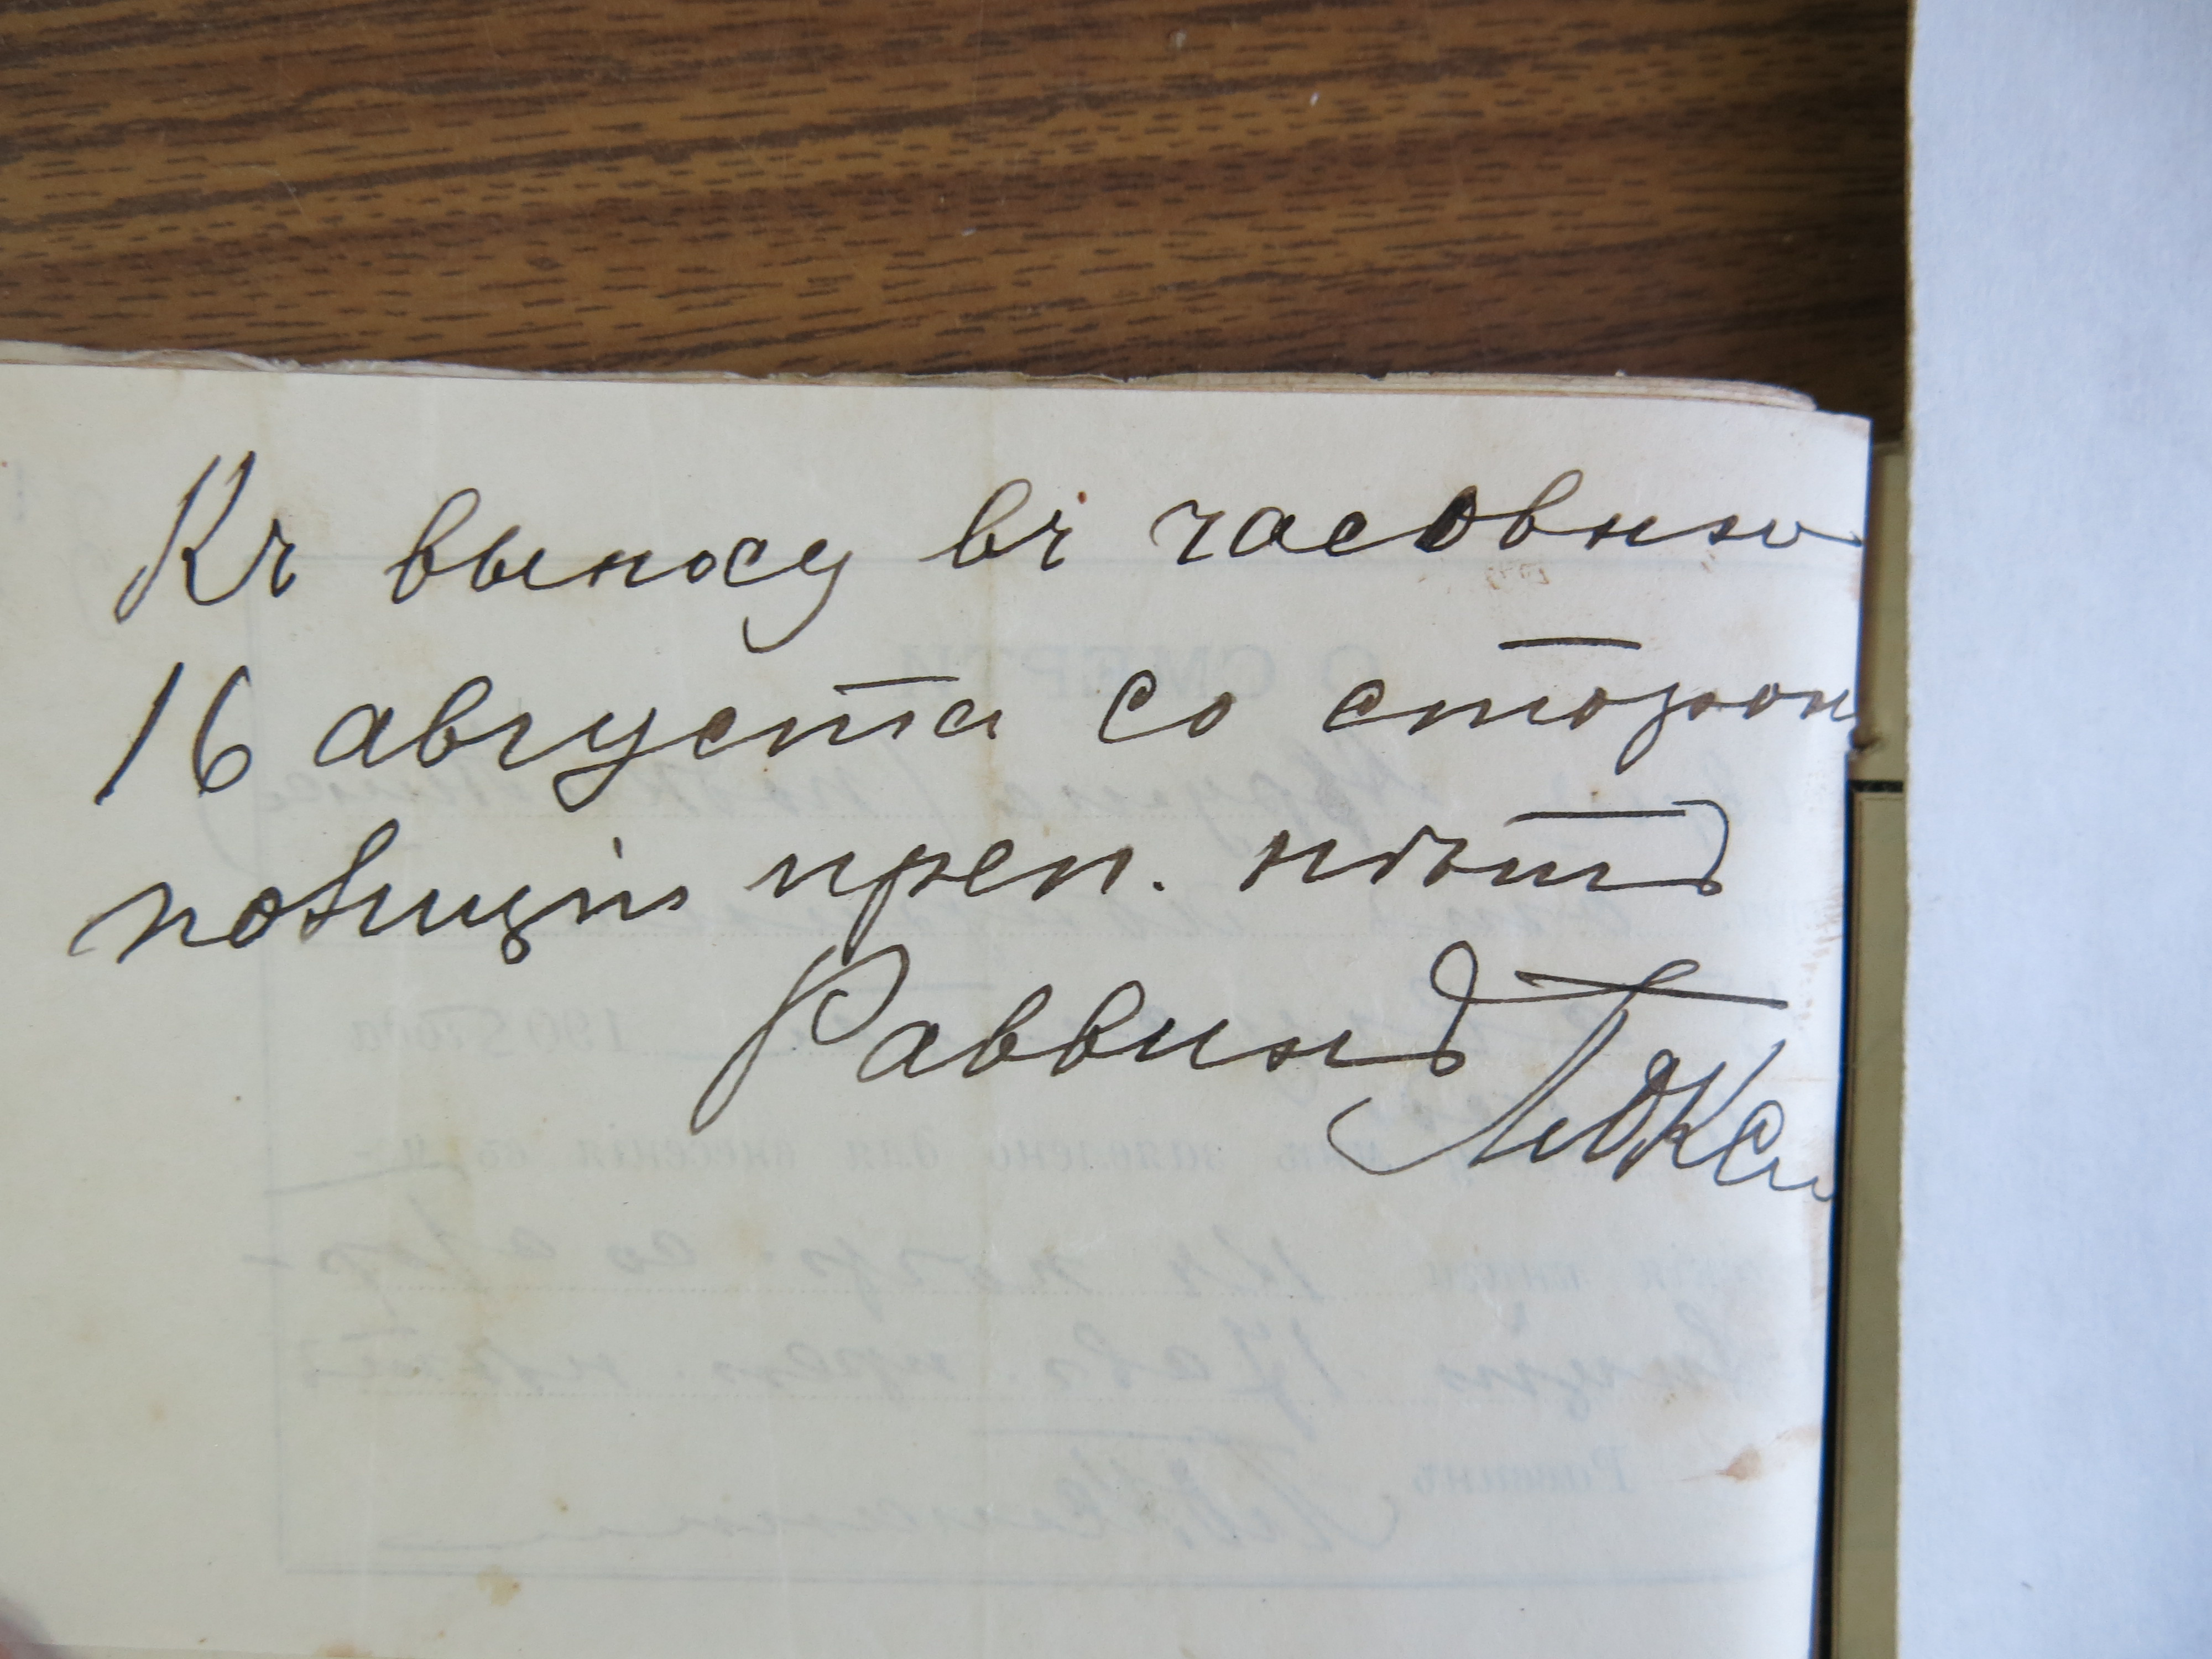 Къ выносу въ часовню
16 августа со сторон
полиціи преп. нѣтъ
Раввинъ